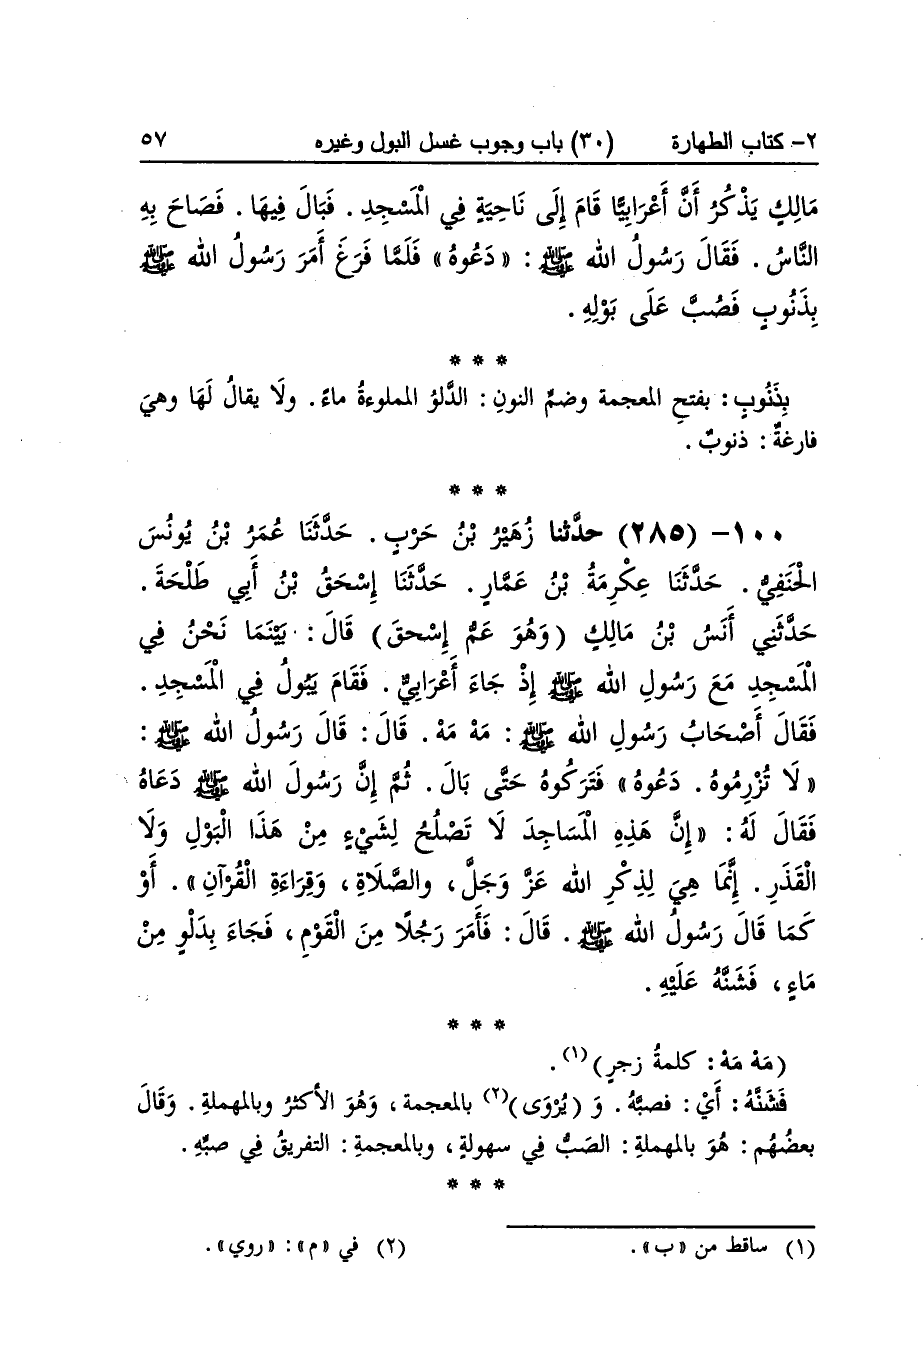 ٢- كتاب الطهارة (٣٠) باب وجوب غسل البول وغيره ٥٧
مَالِكٍ يَذْكُرُ أَنَّ أَعْرَابِيًّا قَامَ إِلَى نَاحِيَةٍ فِي الْمَسْجِدِ . فَبَالَ فِيهَا . فَصَاحَ بِهِ
النَّاسُ . فَقَالَ رَسُولُ الله ﷺ : « دَعُوهُ » فَلَمَّا فَرَغَ أَمَرَ رَسُولُ الله ﷺ
بِذَنُوبٍ فَصُبَّ عَلَى بَوْلِهِ .
* * *
بِذَنُوبٍ : بفتحِ المعجمة وضمِّ النونِ : الدَّلوُ المملوءةُ ماءً . ولَا يقالُ لَهَا وهيَ
فارغةٌ : ذنوبٌ .
* * *
١٠٠- (٢٨٥) حدَّثنا زُهَيْرُ بْنُ حَرْبٍ . حَدَّثَنَا عُمَرُ بْنُ يُونُسَ
الْحَنَفِيُّ . حَدَّثَنَا عِكْرِمَةُ بْنُ عَمَّارٍ . حَدَّثَنَا إِسْحَقُ بْنُ أَبِي طَلْحَةَ .
حَدَّثَنِي أَنَسُ بْنُ مَالِكٍ ( وَهُوَ عَمُّ إِسْحقَ ) قَالَ : بَيْنَمَا نَحْنُ فِي
الْمَسْجِدِ مَعَ رَسُولِ الله ﷺ إِذْ جَاءَ أَعْرَابِيٌّ . فَقَامَ يَبُولُ فِي الْمَسْجِدِ .
فَقَالَ أَصْحَابُ رَسُولِ الله ﷺ : مَهْ مَهْ . قَالَ : قَالَ رَسُولُ الله ﷺ :
« لَا تُزْرِمُوهُ . دَعُوهُ » فَتَرَكُوهُ حَتَّى بَالَ . ثُمَّ إِنَّ رَسُولَ الله ﷺ دَعَاهُ
فَقَالَ لَهُ : « إِنَّ هَذِهِ الْمَسَاجِدَ لَا تَصْلُحُ لِشَيْءٍ مِنْ هَذَا الْبَوْلِ وَلَا
الْقَذَرِ . إِنَّمَا هِيَ لِذِكْرِ الله عَزَّ وَجَلَّ ، والصَّلَاةِ ، وَقِرَاءَةِ الْقُرْآنِ » . أَوْ
كَمَا قَالَ رَسُولُ الله ﷺ . قَالَ : فَأَمَرَ رَجُلًا مِنَ الْقَوْمِ ، فَجَاءَ بِدَلْوٍ مِنْ
مَاءٍ ، فَشَنَّهُ عَلَيْهِ .
* * *
(مَهْ مَهْ : كلمةُ زجرٍ)(١) .
فَشَنَّهُ : أَيْ : فصبَّهُ . وَ (يُرْوَى)(٢) بالمعجمة ، وَهُوَ الأكثرُ وبالمهملةِ . وَقَالَ
بعضُهُم : هُوَ بالمهملةِ : الصَّبُّ فِي سهولةٍ ، وبالمعجمةِ : التفريقُ فِي صبِّهِ .
* * *
(١) ساقط من «ب» . (٢) في «م» : «روي» .